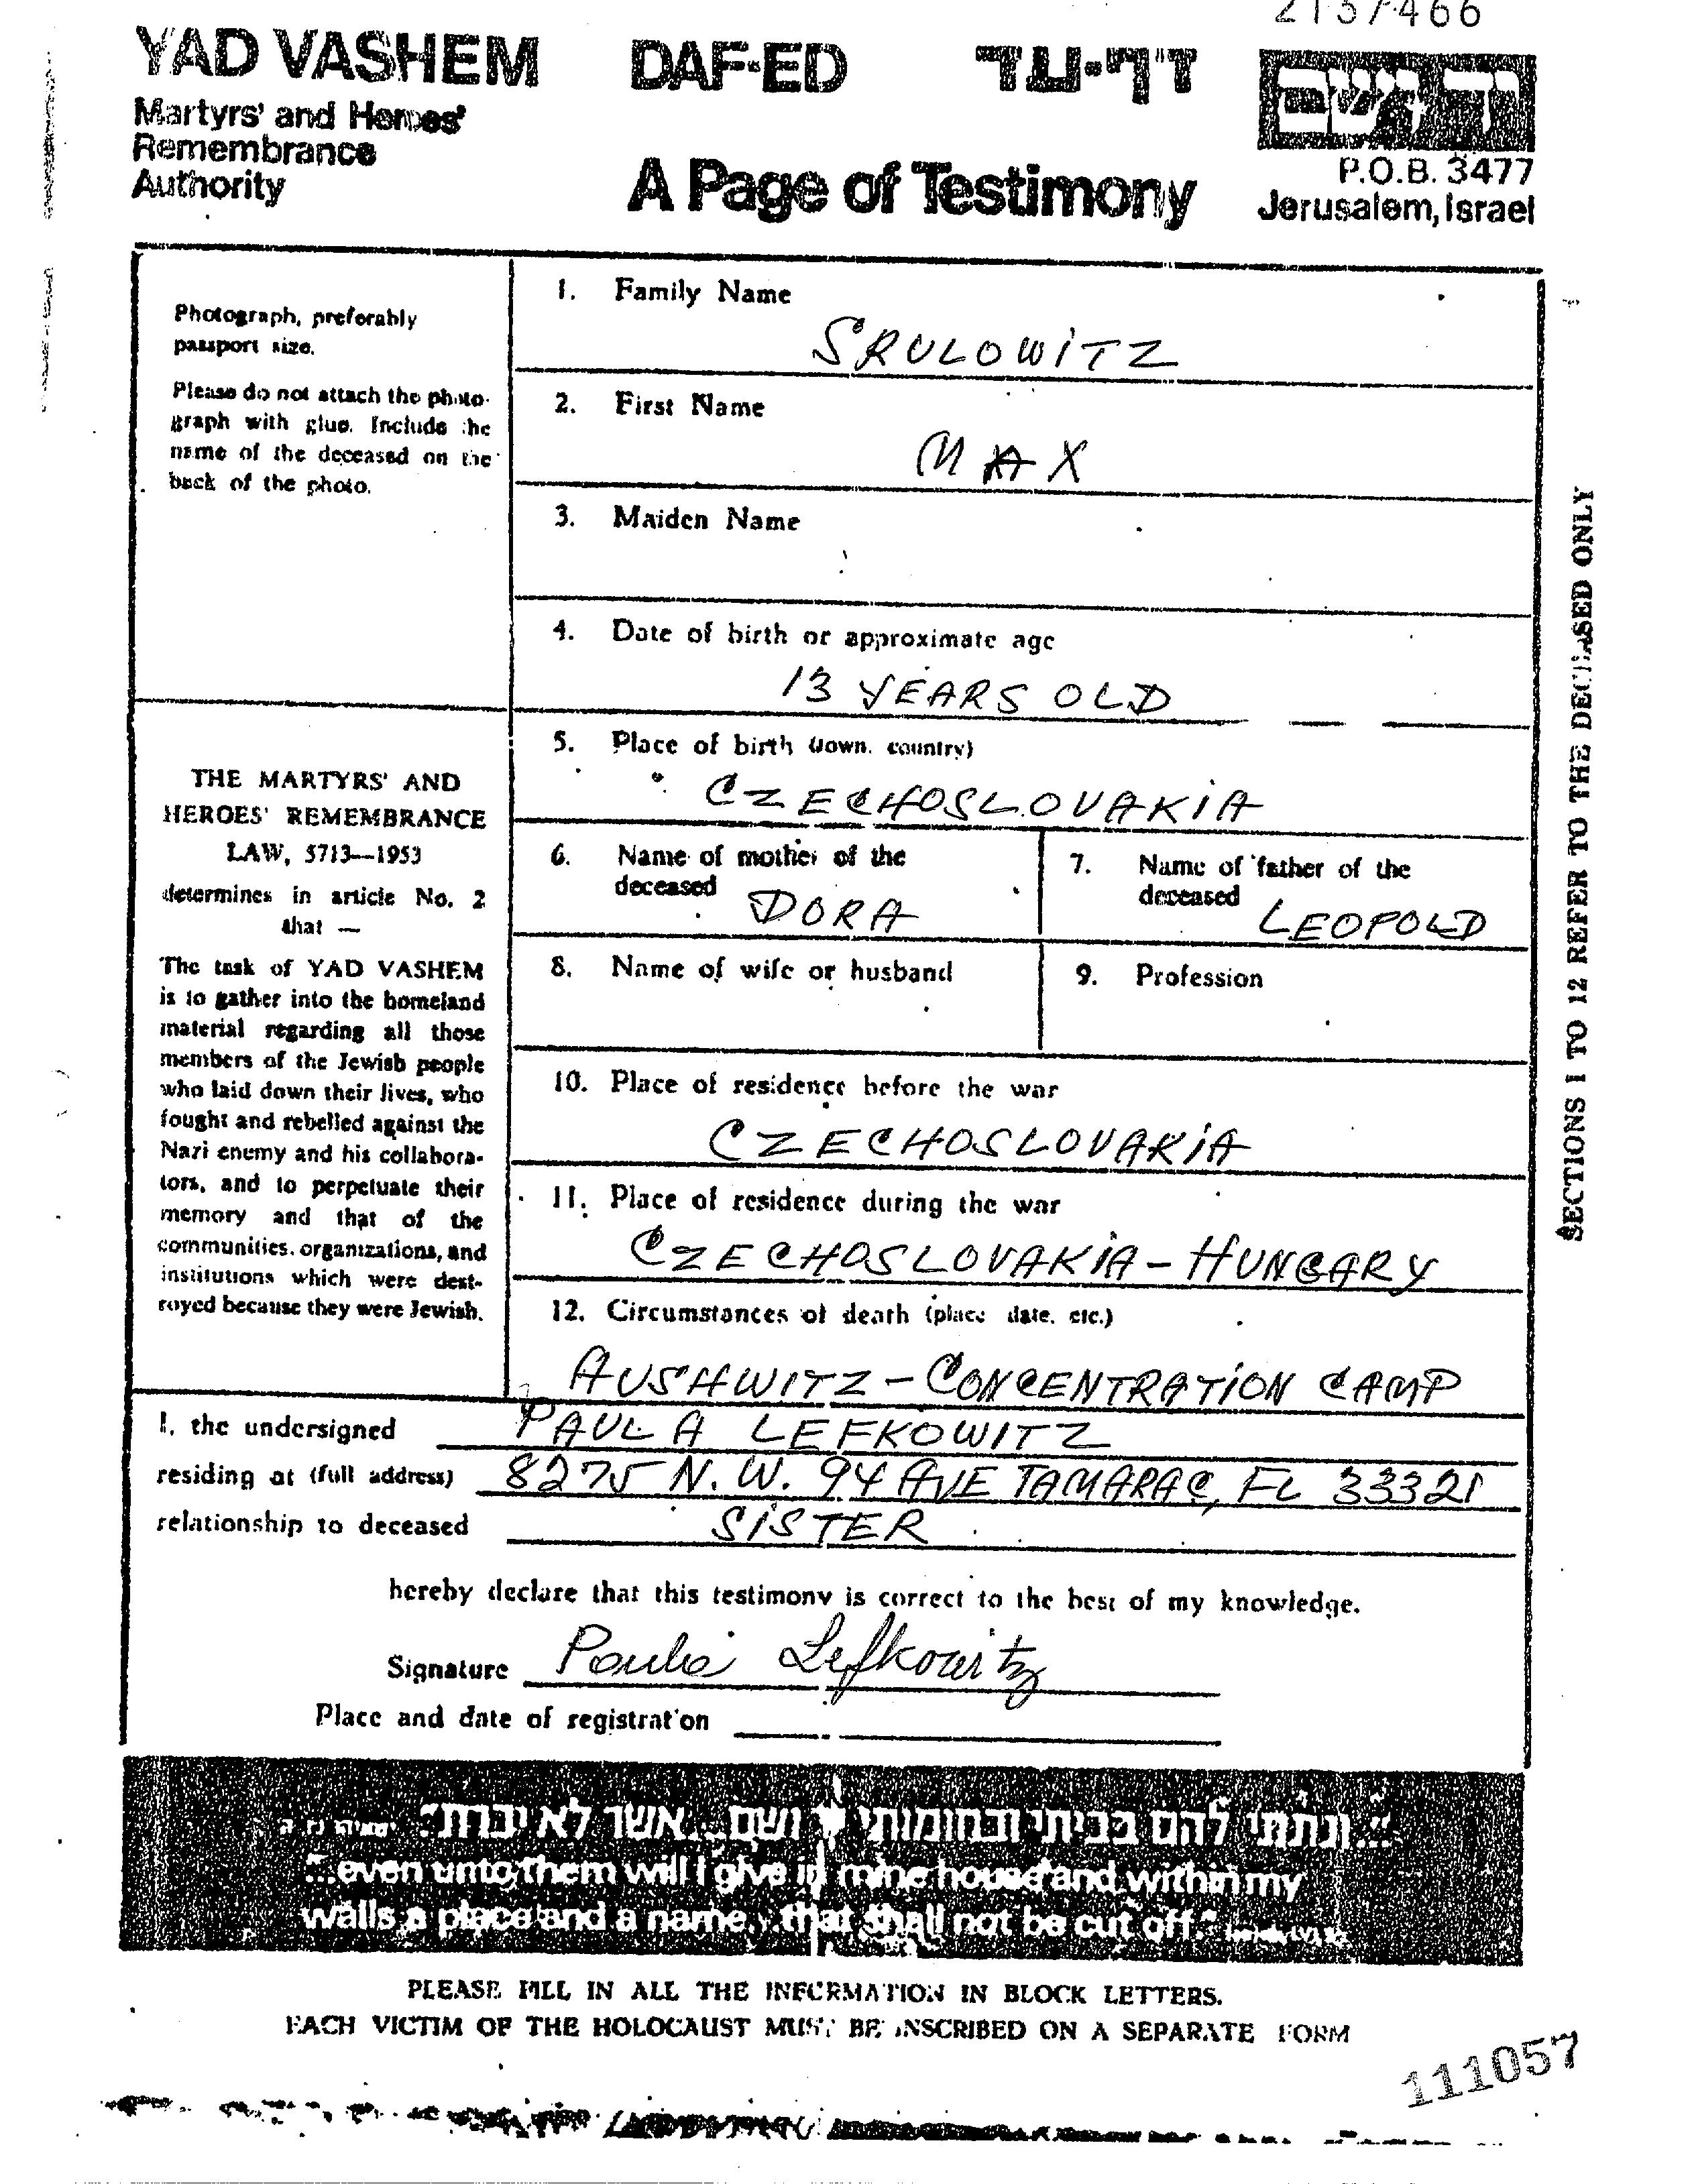 2137466
YAD VASHEM DAF-ED דף-עד יד ושם
Martyrs' and Heroes'
Remembrance
Authority
A Page of Testimony
P.O.B. 3477
Jerusalem, Israel
Photograph, preferably
passport size.
Please do not attach the photo-
graph with glue. Include the
name of the deceased on the
back of the photo.
1. Family Name
SRULOWITZ
2. First Name
MAX
3. Maiden Name
4. Date of birth or approximate age
13 YEARS OLD
5. Place of birth (town, country)
CZECHOSLOVAKIA
6. Name of mother of the
deceased
DORA
7. Name of father of the
deceased
LEOPOLD
8. Name of wife or husband
9. Profession
10. Place of residence before the war
CZECHOSLOVAKIA
11. Place of residence during the war
CZECHOSLOVAKIA - HUNGARY
12. Circumstances of death (place date, etc.)
AUSHWITZ - CONCENTRATION CAMP
THE MARTYRS' AND
HEROES' REMEMBRANCE
LAW, 5713—1953
determines in article No. 2
that —
The task of YAD VASHEM
is to gather into the homeland
material regarding all those
members of the Jewish people
who laid down their lives, who
fought and rebelled against the
Nazi enemy and his collabora-
tors, and to perpetuate their
memory and that of the
communities, organizations, and
institutions which were dest-
royed because they were Jewish.
SECTIONS 1 TO 12 REFER TO THE DECEASED ONLY
I, the undersigned PAULA LEFKOWITZ
residing at (full address) 8275 N.W. 94 AVE TAMARAC, FL 33321
relationship to deceased SISTER
hereby declare that this testimony is correct to the best of my knowledge.
Signature Paula Lefkowitz
Place and date of registration
"...ונתתי להם בביתי ובחומותי יד ושם...אשר לא יכרת" ישעיהו נו ה
"...even unto them will I give in mine house and within my
walls a place and a name...that shall not be cut off."
PLEASE FILL IN ALL THE INFORMATION IN BLOCK LETTERS.
EACH VICTIM OF THE HOLOCAUST MUST BE INSCRIBED ON A SEPARATE FORM
111057